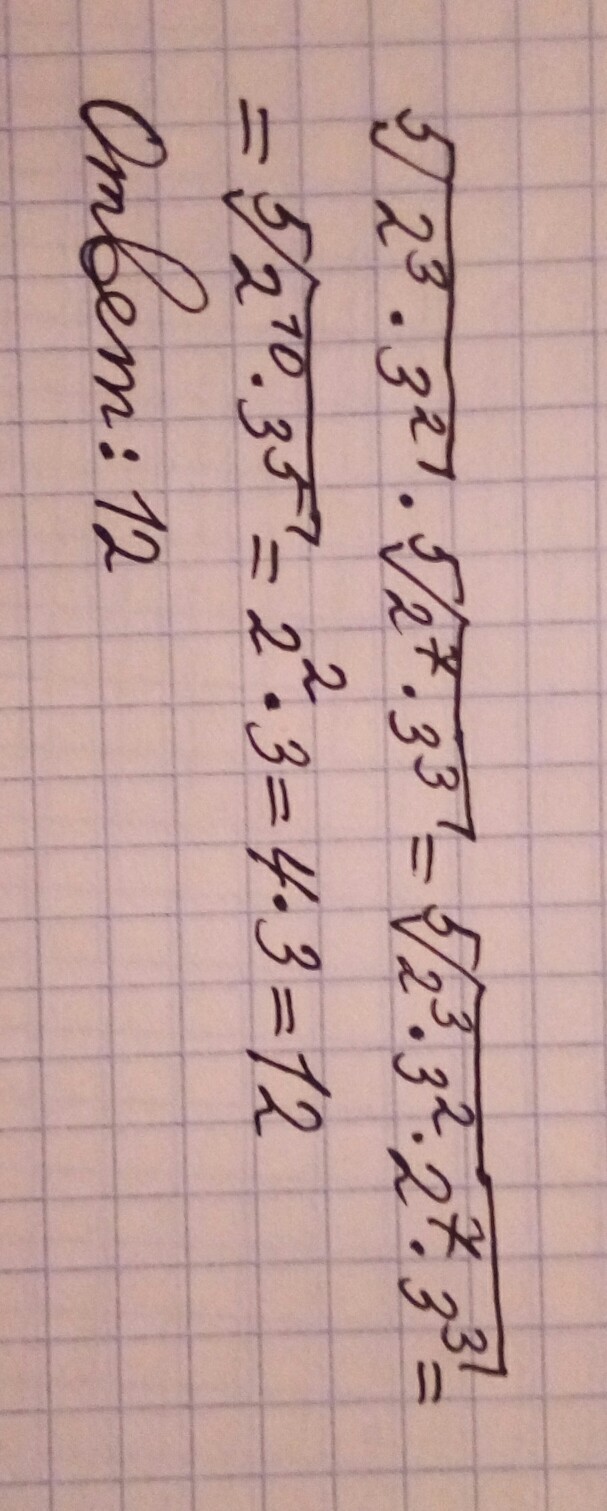 ⁵√(2³ · 3²) · ⁵√(2⁷ · 3³) = ⁵√(2³ · 3² · 2⁷ · 3³) =
= ⁵√(2¹⁰ · 3⁵) = 2² · 3 = 4 · 3 = 12
Ответ: 12